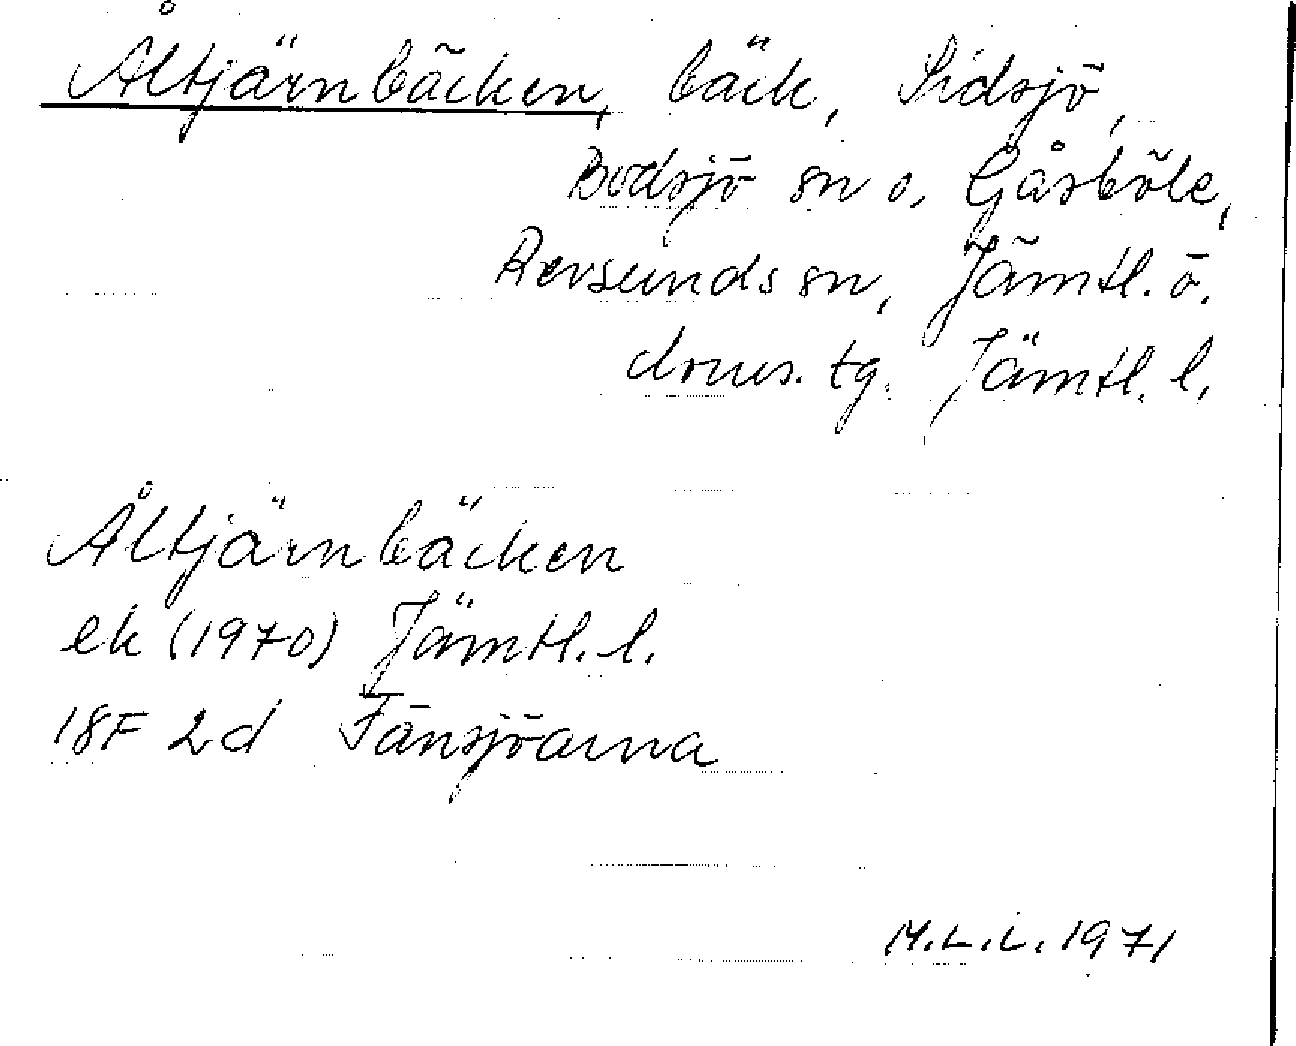 Åltjärnbäcken, bäck, Sidsjö,
Bodsjö sn o. Gåsböle,
Revsunds sn, Jämtl. ö.
doms. tg. Jämtl. l.
Åltjärnbäcken
ek (1970) Jämtl. l.
18F 2d Fånsjöarna
M.L.L. 1971